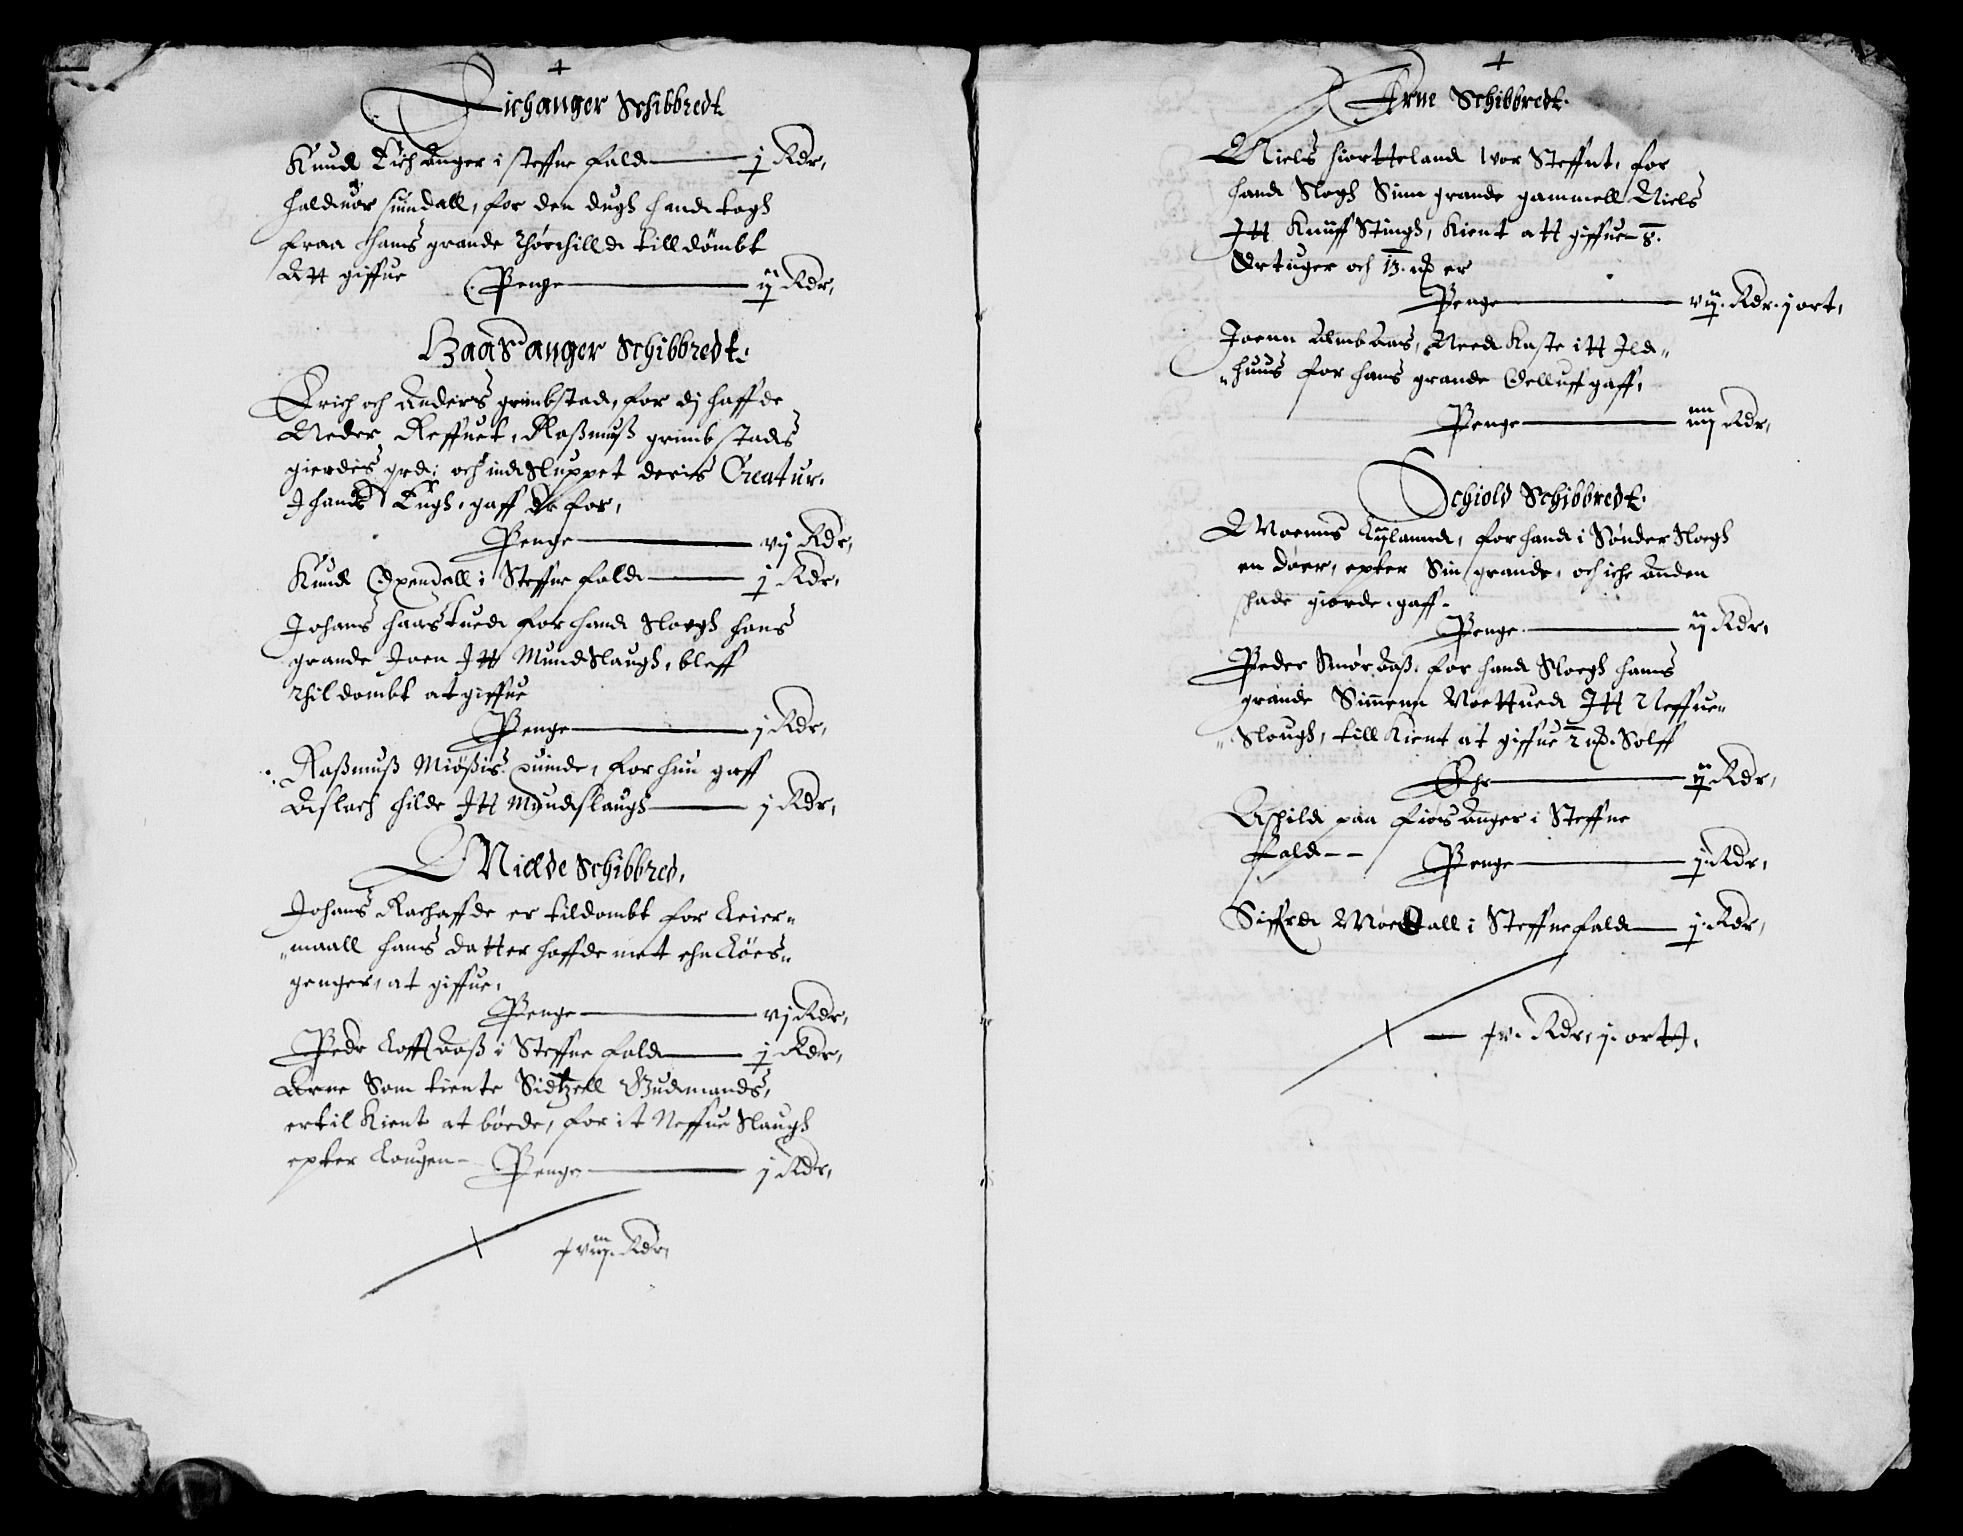 Eichanger Schibbredt
Knud Eichanger i steffne fald — j Rdr,
Halduor suindall, for den dugh hand togh
fraa hans grande Thorchilld till dömbt
Att giffue Penge — ij Rdr,
Haasanger Schibbredt.
Erich och Anders grimbstad, for dj haffde
Neder Reffuet, Raßmuß grimbstads
gierdis grd: och ind Sluppet deris Creatur.
J hans Eugh, gaff de for,
Penge — vij Rdr,
Knud Espendall i Steffne fald — j Rdr,
Johans haarstued for hand Sloegh hans
grande Joen Jtt MundSlaugh, bleff
Thil dombt at giffue
Penge — j Rdr,
Raßmuß Miößis quinde, for hun gaff
Aslach hilde Jtt Mundslaugh — j Rdr,
Mielde Schibbred,
Johans Rachaffde er tildombt for Leier-
maall hans datter haffde met ehn Löes-
genger, at giffue,
Penge — vj Rdr,
Peder Lofftaaß i Steffne fald — j Rdr,
Arne Som tiente Sidtzell Gudmands,
er til kient at böede, for it Neffue Slaugh
epter Lougen — Penge — j Rdr,
xviiij. Rdr,
Arne Schibbredt.
Niels hiortteland vor Steffnt, for
hand Slogh Sinn grande gammell Niels
Jtt Knüff Stingh, kient att giffue 8.
Ørtuger och 13. mk er
Penge — vij. Rdr. j ort,
Joenn Almbaas, Need kaste itt Jld-
huus for hans grande Oelluff gaff,
Penge — iiij Rdr,
Schiold Schibbredt.
Moenns Lÿland, for hand i Sønder Sloegh
en döer, epter Sin grande, och iche anden
shade giorde, gaff.
Penge — ij Rdr,
Peder Smöraaß, for hand Sloegh hans
grande Simmenn Moettued Jtt Neffue-
Slough, till kient at giffue 2 mk. Sölff
Ehr — ij Rdr,
Ashild paa Fiösanger i Steffne
Fald — Penge — j. Rdr,
Siffred Moedall i Steffnefald — j. Rdr,
xv. Rdr, j. ortt,